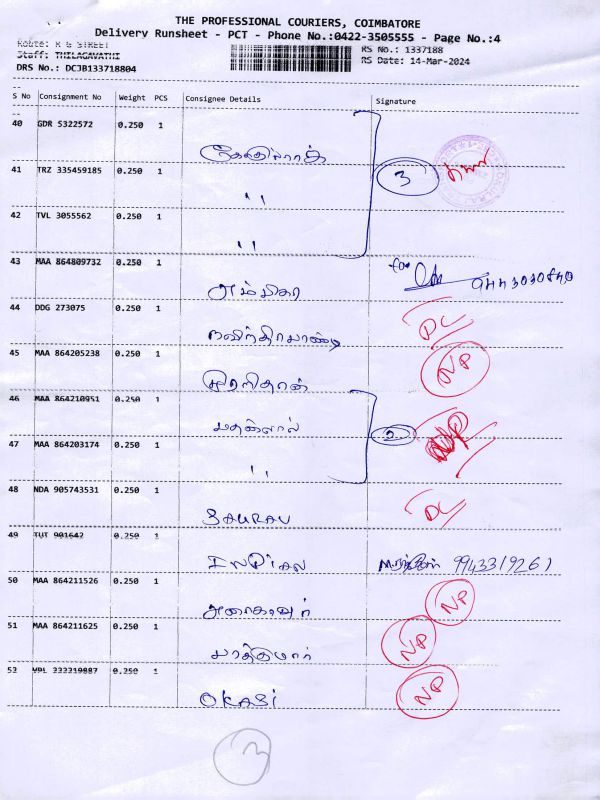 THE PROFESSIONAL COURIERS, COIMBATORE
Delivery Runsheet - PCT - Phone No.:0422-3505555 - Page No.:4
Route: R G STREET
Staff: THILAGAVATHI
DRS No.: DCJB133718804
RS No.: 1337188
RS Date: 14-Mar-2024
S No Consignment No Weight PCS Consignee Details Signature
40 GDR 5322572 0.250 1
41 TRZ 335459185 0.250 1
3
"
42 TVL 3055562 0.250 1
"
43 MAA 864809732 0.250 1
for 9443030840
அம்பிகா
44 DDG 273075 0.250 1
DL
ரவிந்திரபாண்டி
45 MAA 864205238 0.250 1
NP
46 MAA 864210951 0.250 1
2
47 MAA 864203174 0.250 1
"
48 NDA 905743531 0.250 1
DL
SAURAV
49 TUT 901642 0.250 1
9943319261
50 MAA 864211526 0.250 1
NP
51 MAA 864211625 0.250 1
NP
52 VPL 332219887 0.250 1
NP
OKASi
3